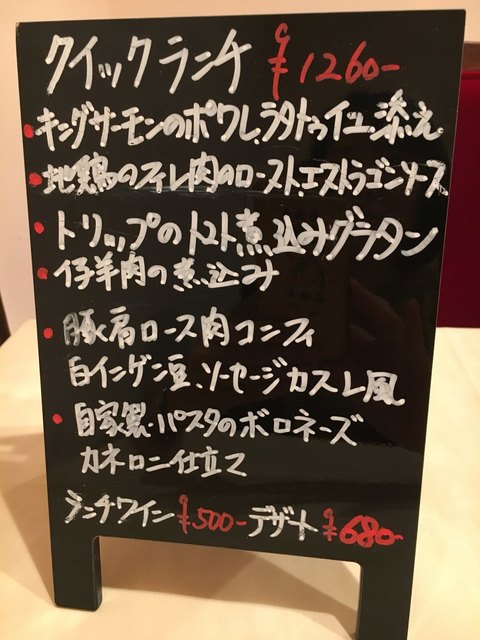 クイックランチ ¥1260-
・キングサーモンのポワレ、ラタトゥイユ添え
・地鶏のフィレ肉のロースト、エストラゴンソース
・トリップのトマト煮込みグラタン
・仔羊肉の煮込み
・豚肩ロース肉コンフィ
白インゲン豆、ソーセージカスレ風
・自家製パスタのボロネーズ
カネロニ仕立て
ランチワイン ¥500- デザート ¥680-